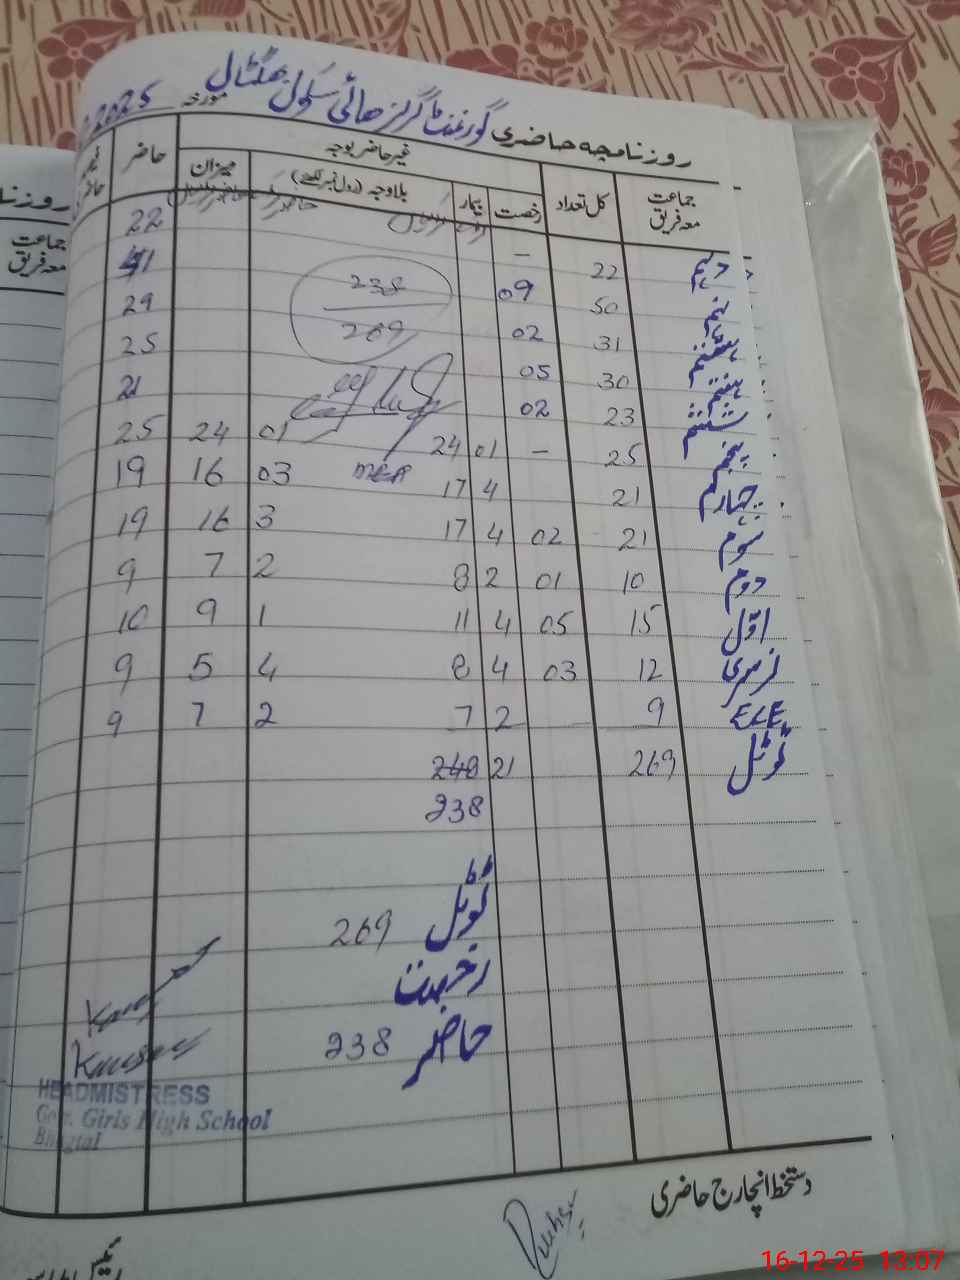 روزنامچہ حاضری گورنمنٹ گرلز ہائی سکول بھگٹال مورخہ 2025
جماعت معہ فریق کل تعداد غیر حاضر بوجہ میزان حاضر
رخصت بیمار بلاوجہ (رول نمبر لکھیے)
دہم 22 - 22
نہم 50 09 41
ہشتم 31 02 29
ہفتم 30 05 25
ششم 23 02 21
238
269
MEA
پنجم 25 - 01 24 01 24 25
چہارم 21 4 17 03 16 19
سوم 21 02 4 17 3 16 19
دوم 10 01 2 8 2 7 9
اوّل 15 05 4 11 1 9 10
نرسری 12 03 4 8 4 5 9
ECE 9 2 7 2 7 9
ٹوٹل 269 21 248
238
ٹوٹل 269
رخصت
حاضر 238
HEADMISTRESS
Govt. Girls High School
دستخط انچارج حاضری
روزنا
جماعت
معہ فریق
16-12-25 13:07